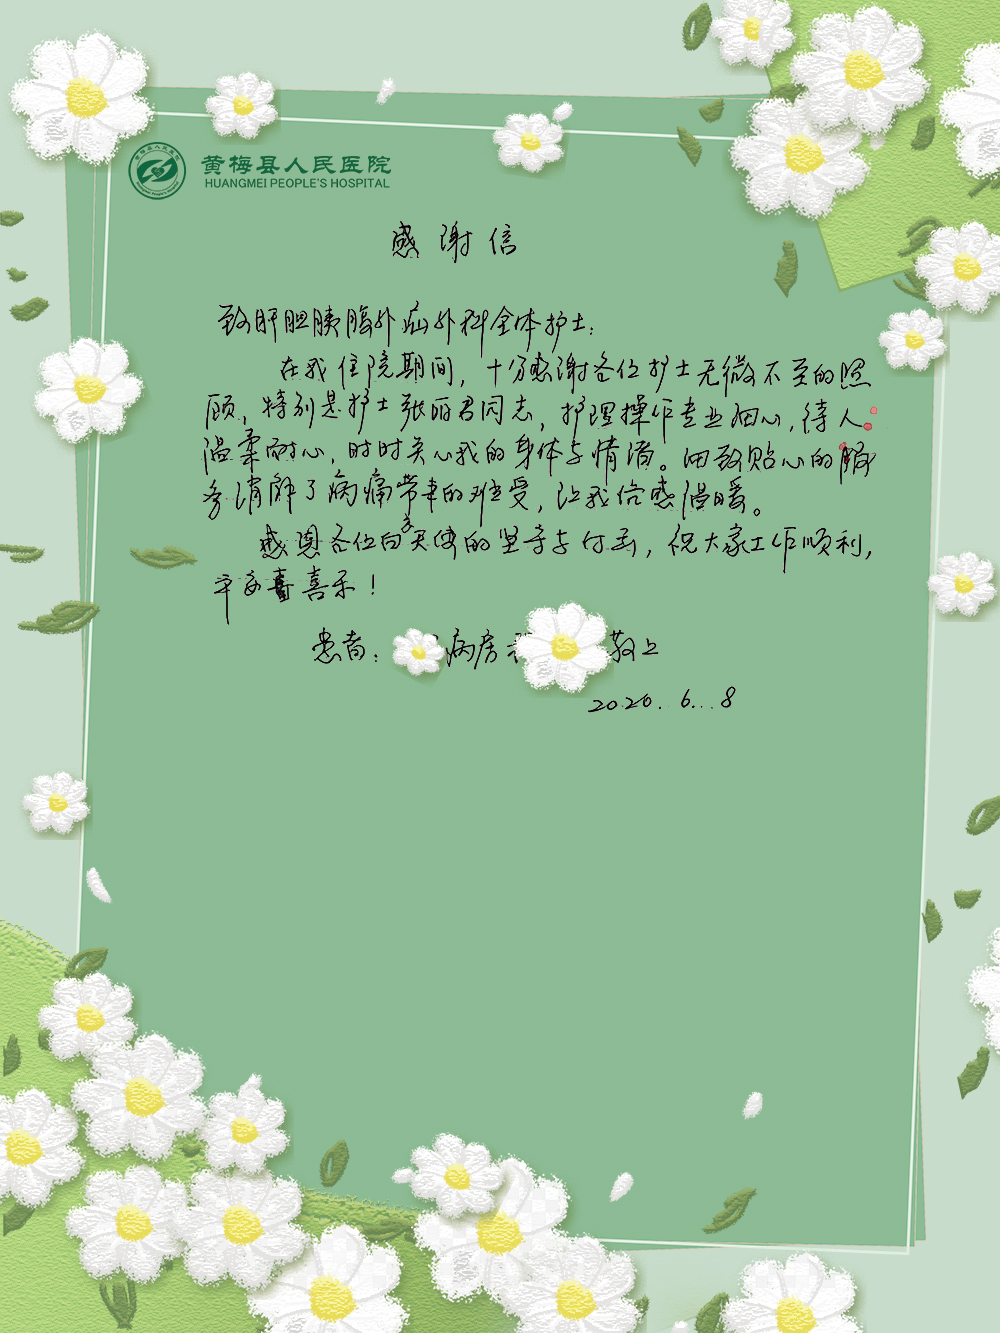 黄梅县人民医院
HUANGMEI PEOPLE'S HOSPITAL
感谢信
致肝胆胰腺外疝外科全体护士:
在我住院期间,十分感谢各位护士无微不至的照
顾,特别是护士张丽君同志,护理操作专业细心,待人
温柔耐心,时时关心我的身体与情绪。细致贴心的服
务消解了病痛带来的难受,让我倍感温暖。
感恩各位白衣天使的坚守与付出,祝大家工作顺利,
平安喜喜乐!
患者: 病房 敬上
2026.6.8